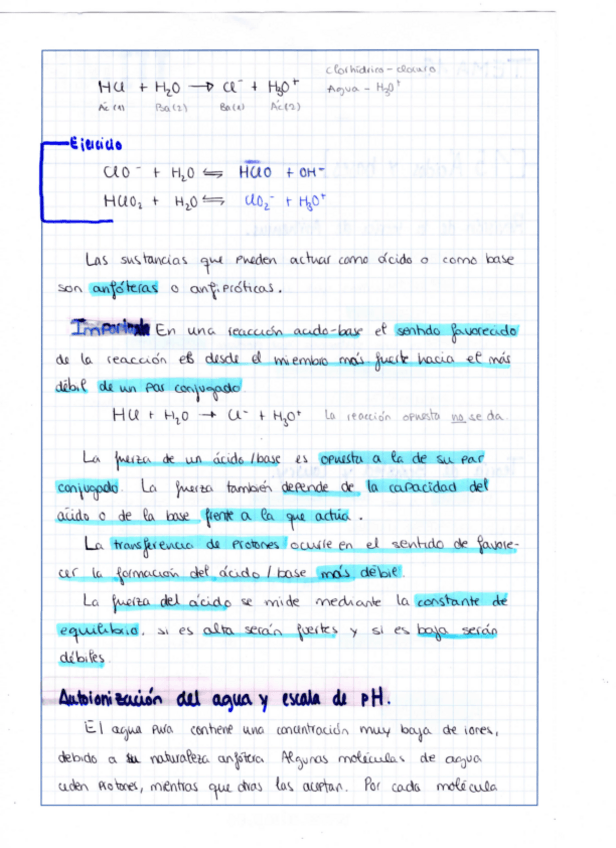 clorhídrico - cloruro
HCl + H₂O → Cl⁻ + H₃O⁺ Agua - H₃O⁺
Ác(1) Ba(2) Ba(1) Ác(2)
Ejercicio
ClO⁻ + H₂O ⇌ HClO + OH⁻
HClO₂ + H₂O ⇌ ClO₂⁻ + H₃O⁺
Las sustancias que pueden actuar como ácido o como base
son anfóteras o anfipróticas.
Importante En una reacción acido-base el sentido favorecido
de la reacción es desde el miembro más fuerte hacia el más
débil de un par conjugado.
HCl + H₂O → Cl⁻ + H₃O⁺ la reacción opuesta no se da.
La fuerza de un ácido/base es opuesta a la de su par
conjugado. La fuerza también depende de la capacidad del
ácido o de la base frente a la que actúa.
La transferencia de protones ocurre en el sentido de favore-
cer la formación del ácido/base más débil.
La fuerza del ácido se mide mediante la constante de
equilibrio, si es alta serán fuertes y si es baja serán
débiles.
Autoionización del agua y escala de pH.
El agua pura contiene una concentración muy baja de iones,
debido a su naturaleza anfótera Algunas moléculas de agua
ceden protones, mientras que otras las aceptan. Por cada molécula